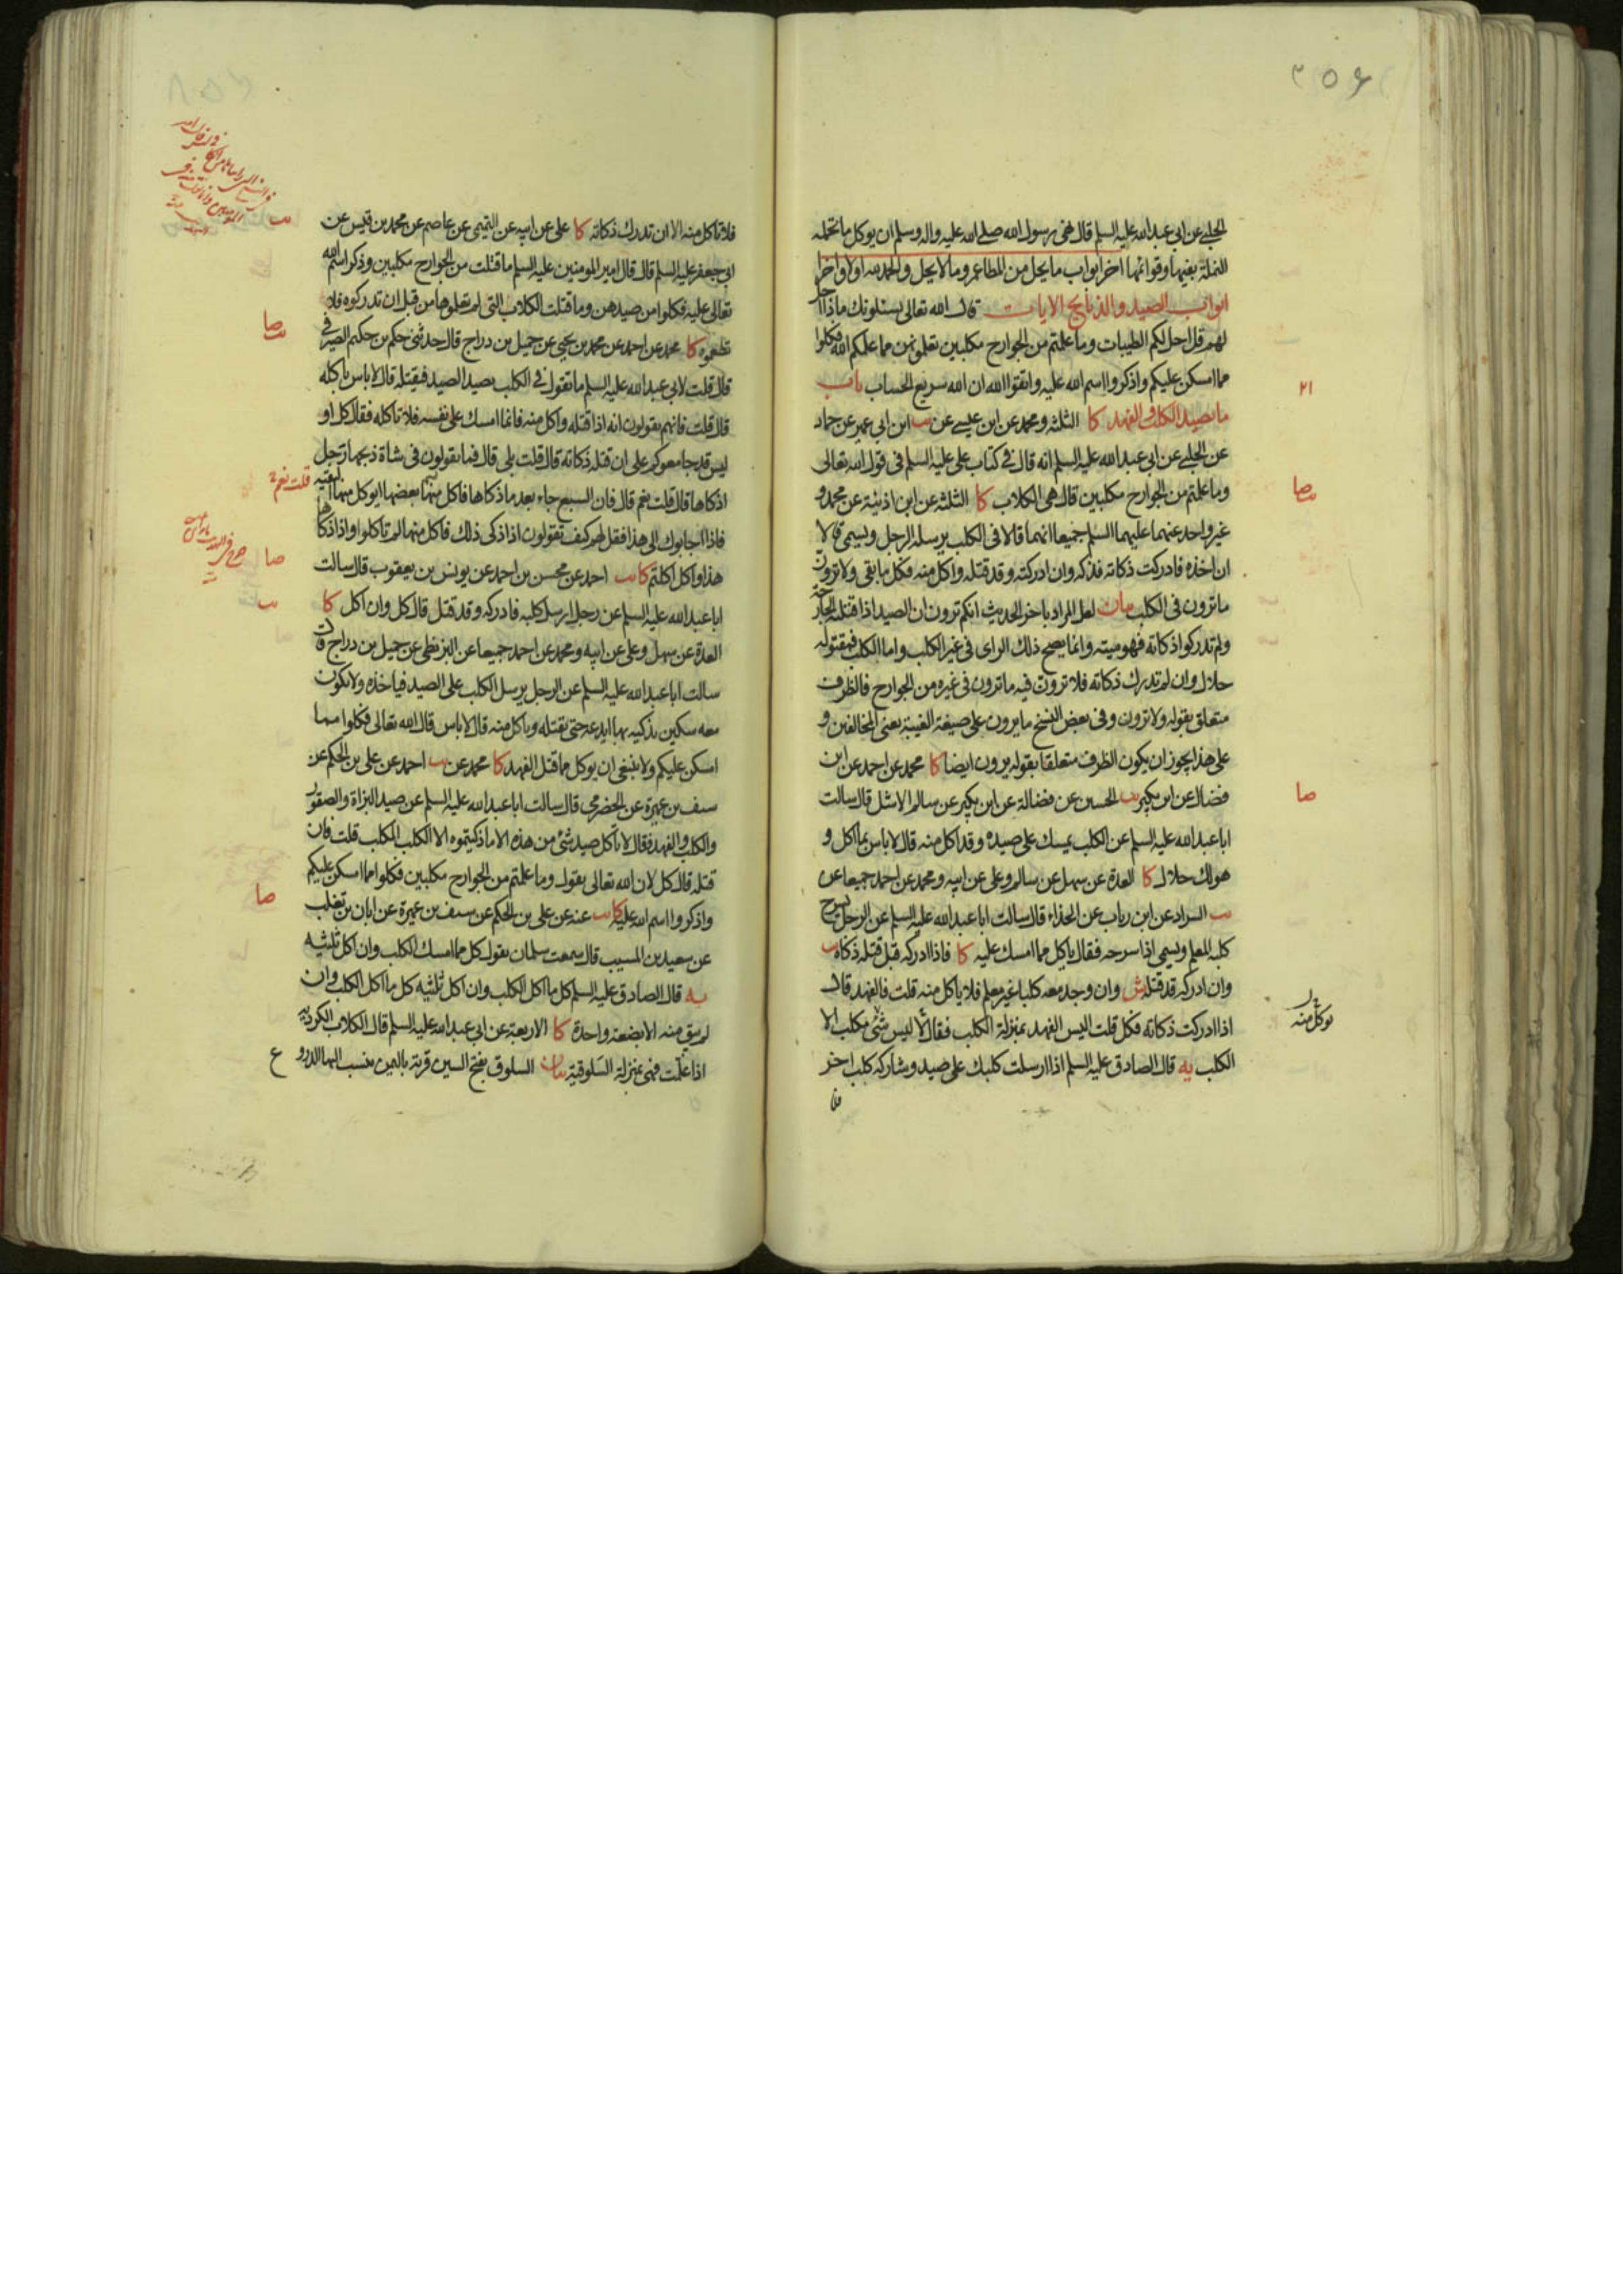 ٣٥٤
الحلبي عن ابي عبد الله عليه السلم قال نهى رسول الله صلى الله عليه واله وسلم ان يوكل ما تحمله
النملة بفيها وقوائمها اخر ابواب ما يحل من المطاعم وما لا يحل والحمد لله اولا واخرا
ابواب الصيد والذبايح الايات قال الله تعالى يسئلونك ماذا احل
لهم قل احل لكم الطيبات وما علمتم من الجوارح مكلبين تعلمونهن مما علمكم الله فكلوا
مما امسكن عليكم واذكروا اسم الله عليه واتقوا الله ان الله سريع الحساب باب
٢١
ما يصيد الكلب والفهد كا الثلثة ومحمد عن ابن عيسى عن يب ابن ابي عمير عن حماد
عن الحلبي عن ابي عبد الله عليه السلم انه قال في كتاب علي عليه السلم في قول الله تعالى
وما علمتم من الجوارح مكلبين قال هي الكلاب كا الثلثة عن ابن اذينة عن محمد و
يب صا
غير واحد عنهما عليهما السلم جميعا انهما قالا في الكلب يرسله الرجل ويسمي قالا
ان اخذه فادركت ذكاته فذكه وان ادركته وقد قتله واكل منه فكل ما بقي ولا ترون
ما ترون في الكلب بيان لعل المراد باخر الحديث انكم ترون ان الصيد اذا قتله الجارحة
ولم تدركوا ذكاته فهو ميتة وانما يصح ذلك الراى في غير الكلب واما الكلب فمقتوله
حلال وان لم تدرك ذكاته فلا ترون فيه ما ترون في غيره من الجوارح فالظرف
متعلق بقوله ولا ترون وفي بعض النسخ ما يرون على صيغة الغيبة يعني المخالفين و
على هذا يجوز ان يكون الظرف متعلقا بقوله يرون ايضا كا محمد عن احمد عن ابن
فضال عن ابن بكير يب الحسين عن فضالة عن ابن بكير عن سالم الاشل قال سالت
صا
ابا عبد الله عليه السلم عن الكلب يمسك على صيده وقد اكل منه قال لا باس بما اكل و
هو لك حلال كا العدة عن سهل عن سالم وعلي عن ابيه ومحمد عن احمد جميعا عن
يب السراد عن ابن رباب عن الحذاء قال سالت ابا عبد الله عليه السلم عن الرجل يسرح
كلبه المعلم ويسمي اذا سرحه فقال ياكل مما امسك عليه كا فاذا ادركه قبل قتله ذكاه يب
وان ادركه قد قتله ش وان وجد معه كلبا غير معلم فلا ياكل منه قلت فالفهد قال
اذا ادركت ذكاته فكل قلت اليس الفهد بمنزلة الكلب فقال لا ليس شئ مكلب الا
يوكل منه
الكلب يه قال الصادق عليه السلم اذا ارسلت كلبك على صيد وشاركه كلب اخر
فلا تاكل منه الا ان تدرك ذكاته كا علي عن ابيه عن التميمي عن عاصم عن محمد بن قيس عن
يب
ابي جعفر عليه السلم قال قال امير المومنين عليه السلم ما قتلت من الجوارح مكلبين وذكر اسم الله
تعالى عليه فكلوا من صيدهن وما قتلت الكلاب التي لم تعلموها من قبل ان تدركوه فلا
تطعموه كا محمد عن احمد عن محمد بن يحيى عن جميل بن دراج قال حدثني حكم بن حكيم الصيرفي
يب صا
قال قلت لابي عبد الله عليه السلم ما تقول في الكلب يصيد الصيد فيقتله قال لا باس باكله
قال قلت فانهم يقولون انه اذا قتله واكل منه فانما امسك على نفسه فلا تاكله فقال كل او
ليس قد جامعوكم على ان قتله ذكاته قال قلت بلى قال فما يقولون في شاة ذبحها رجل
اذكاها قال قلت نعم قال فان السبع جاء بعد ما ذكاها فاكل منها بعضها ايوكل منها
البقية قلت نعم
فاذا اجابوك الى هذا فقل لهم كيف تقولون اذا ذكى ذلك فاكل منها لم تاكلوا واذا ذكاها
هذا واكل اكلتم كا يب احمد عن محسن بن احمد عن يونس بن يعقوب قال سالت
صا
ابا عبد الله عليه السلم عن رجل ارسل كلبه فادركه وقد قتل قال كل وان اكل كا
يب
العدة عن سهل وعلي عن ابيه ومحمد عن احمد جميعا عن البزنطي عن جميل بن دراج قال
سالت ابا عبد الله عليه السلم عن الرجل يرسل الكلب على الصيد فياخذه ولا يكون
معه سكين يذكيه بها ايدعه حتى يقتله وياكل منه قال لا باس قال الله تعالى فكلوا مما
امسكن عليكم ولا ينبغي ان يوكل مما قتل الفهد كا محمد عن يب احمد عن علي بن الحكم عن
سيف بن عميرة عن الحضرمي قال سالت ابا عبد الله عليه السلم عن صيد البزاة والصقور
والكلب والفهد فقال لا تاكل صيد شئ من هذه الا ما ذكيتموه الا الكلب المكلب قلت فان
قتله قال كل لان الله تعالى يقول وما علمتم من الجوارح مكلبين فكلوا مما امسكن عليكم
واذكروا اسم الله عليه كا يب عنه عن علي بن الحكم عن سيف بن عميرة عن ابان بن تغلب
صا
عن سعيد بن المسيب قال سمعت سلمان يقول كل مما امسك الكلب وان اكل ثلثيه
يه قال الصادق عليه السلم كل ما اكل الكلب وان اكل ثلثيه كل ما اكل الكلب وان
لم يبق منه الا بضعة واحدة كا الاربعة عن ابي عبد الله عليه السلم قال الكلاب الكردية
اذا علمت فهي بمنزلة السلوقية بيان السلوق بفتح السين قرية باليمن ينسب اليها الدرو
ع